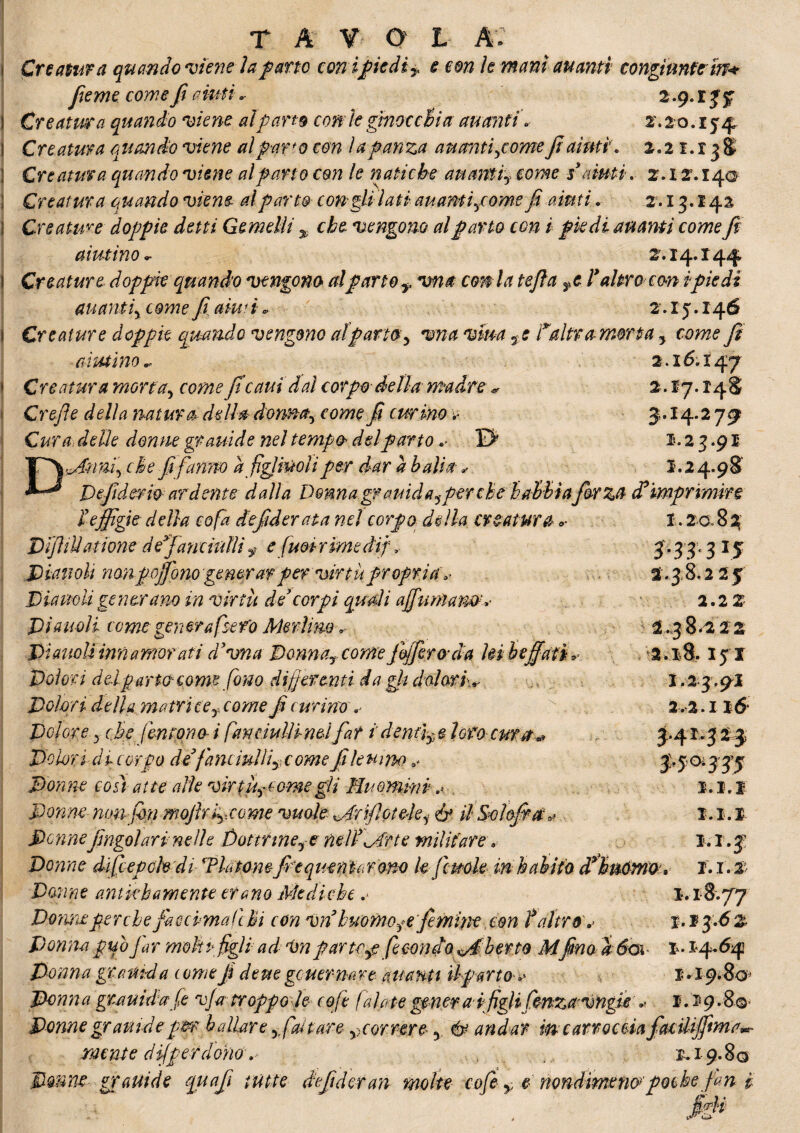 TAVOLA.
Creatura quando viene la parto con i piedi, e con le mani auanti congiunte in-
sieme come si aiuti. 2.9.135
Creatura quando viene al parto con le ginocchia auanti. 2.20.154
Creatura quando viene al parto con la panza auanti, come si aiuti. 2.21.138
Creatura quando viene al parto con le natiche auanti, come s'aiuti. 2.12.140
Creatura quando viene al parto con gli lati auanti, come si aiuti. 2.13.142
Creature doppie detti Gemelli, che vengono al parto con i piedi auanti come si
aiutino. 2.14.144
Creature doppie quando vengono al parto, vna con la testa, e l'altro con i piedi
auanti, come si aiuti. 2.15.146
Creature doppie quando vengono al parto, vna viua, e l'altra morta, come si
aiutino. 2.16.147
Creatura morta, come si caui dal corpo della madre. 2.17.148
Creste della natura della donna, come si curino. 3.14.279
Cura delle donne grauide nel tempo del parto. 1.23.91
D
DAnni, che si fanno a figliuoli per dar a balia. 1.24.98
Desiderio ardente dalla Donna grauida, perche habbia forza d'imprimire
l'effigie della cosa desiderata nel corpo della creatura. 1.20.82
Distillatione de' fanciulli, e suoi rimedij. 3.33.315
Diauoli non possono generar per virtù propria. 2.38.225
Diauoli generano in virtù de' corpi quali assumano. 2.22
Diauoli come generassero Merlino. 2.38.222
Diauoli innamorati d'vna Donna, come fossero da lei beffati. 2.18.151
Dolori del parto come sono differenti da gli dolori. 1.23.91
Dolori della matrice, come si curino. 2.2.116
Dolore, che sentono i fanciulli nel far i denti, e loro cura. 3.41.323
Dolori di corpo de' fanciulli, come si leuino. 3.50.335
Donne così atte alle virtù, come gli Huomini. 1.1.1
Donne non son mostri, come vuole Aristotele, & il Solofra. 1.1.1
Donne singolari nelle Dottrine, e nell'Arte militare. 1.1.3
Donne discepole di Platone frequentarono le scuole in habito d'huomo. 1.1.2
Donne antichamente erano Mediche. 1.18.77
Donne perche facci maschi con vn'huomo, e femine con l'altro. 1.13.62
Donna può far molti figli ad vn parto, e secondo Alberto M. sino a 60. 1.14.64
Donna grauida come si deue gouernare auanti il parto. 1.19.80
Donna grauida se vsa troppo le cose salate genera i figli senza vngie. 1.19.80
Donne grauide per ballare, saltare, correre, & andar in carroccia facilissima-
mente disperdono. 1.19.80
Donne grauide quasi tutte desideran molte cose, e nondimeno poche son i
figli